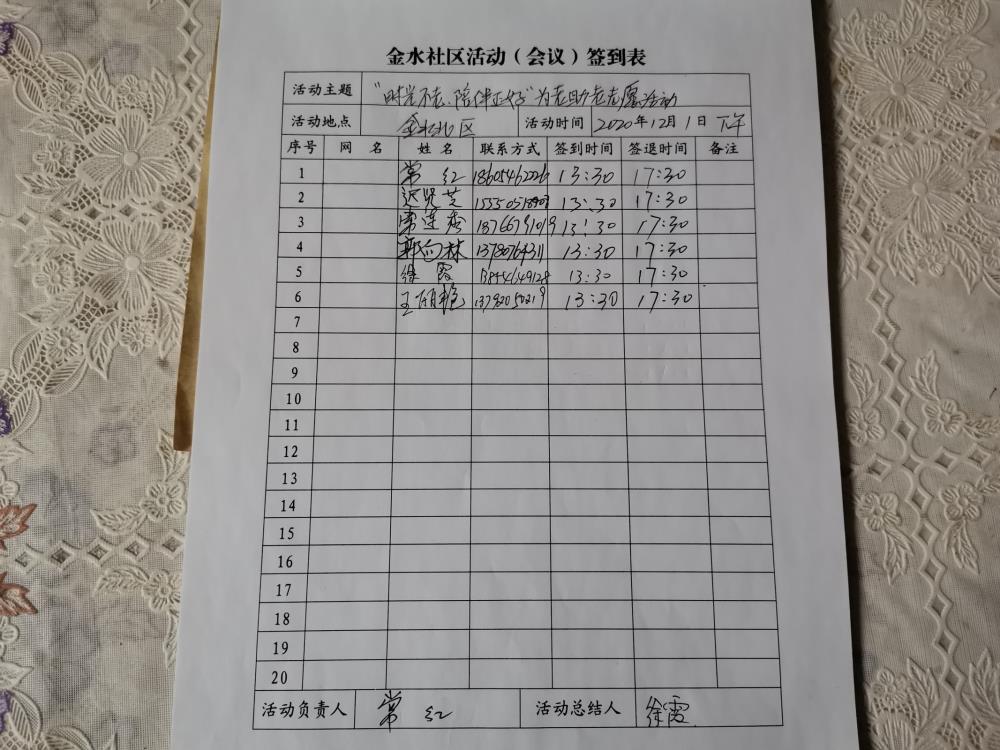 金水社区活动（会议）签到表
活动主题 "时光不老、陪伴正好"为老助老志愿活动
活动地点 金水社区 活动时间 2020年12月1日下午
序号 网 名 姓 名 联系方式 签到时间 签退时间 备注
1 常 红 18605462226 13:30 17:30
2 迟贤芝 13:30 17:30
3 常连秀 18766791019 13:30 17:30
4 林 13:30 17:30
5 徐霞 13854649128 13:30 17:30
6 王丽艳 13792050219 13:30 17:30
7
8
9
10
11
12
13
14
15
16
17
18
19
20
活动负责人 常 红 活动总结人 徐霞